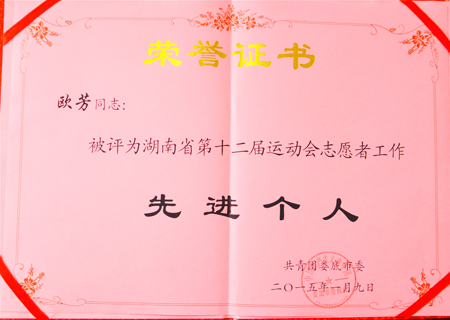 荣誉证书
欧芳同志：
被评为湖南省第十二届运动会志愿者工作
先进个人
共青团娄底市委
二〇一五年一月九日